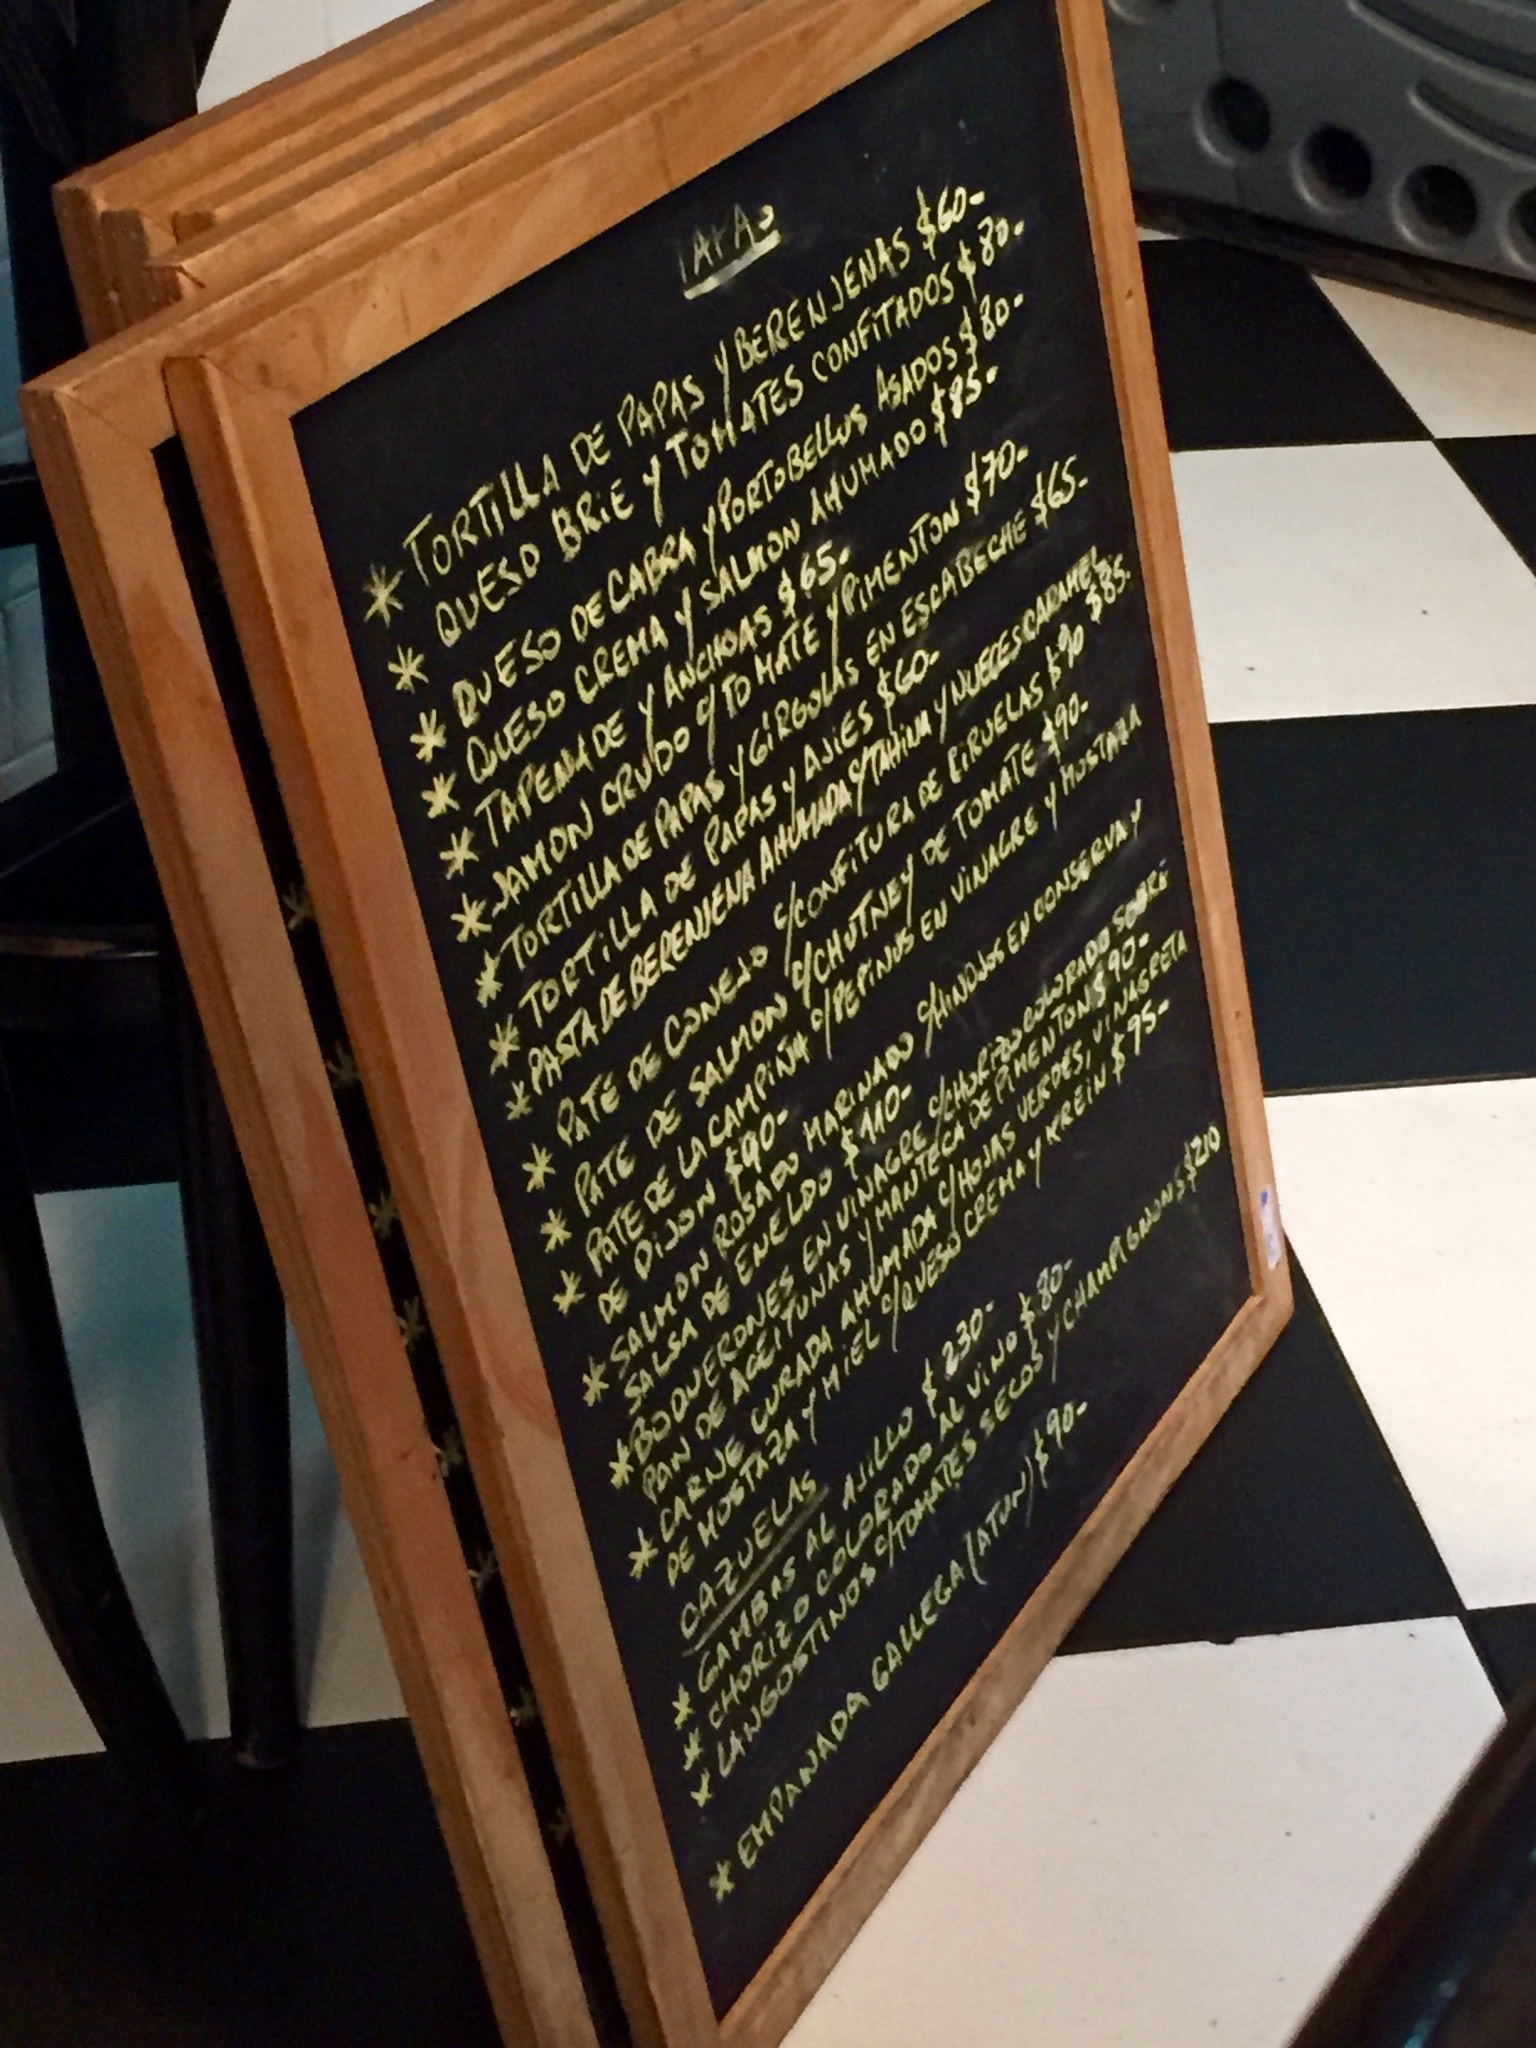 TAPAS
* TORTILLA DE PAPAS Y BERENJENAS $60-
* QUESO BRIE Y TOMATES CONFITADOS $80-
* QUESO DE CABRA Y PORTOBELLOS ASADOS $80-
* QUESO CREMA Y SALMON AHUMADO $85-
* TAPENADE Y ANCHOAS $65-
* JAMON CRUDO C/TOMATE Y PIMENTON $70-
* TORTILLA DE PAPAS Y GÍRGOLAS EN ESCABECHE $65-
* TORTILLA DE PAPAS Y AJIES $60-
* PASTA DE BERENJENA AHUMADA C/TAHINA Y NUECES CARAMEL.
$85-
* PATÉ DE CONEJO C/CONFITURA DE CIRUELAS $90
* PATE DE SALMON C/CHUTNEY DE TOMATE $90-
* PATE DE LA CAMPIÑA C/PEPINOS EN VINAGRE Y MOSTAZA
DE DIJON $90-
* SALMON ROSADO MARINADO C/HINOJOS EN CONSERVA Y
SALSA DE ENELDO $110-
* BOQUERONES EN VINAGRE C/CHORIZO COLORADO SOBRE
PAN DE ACEITUNAS Y MANTECA DE PIMENTON $90-
* CARNE CURADA AHUMADA C/HOJAS VERDES, VINAGRETA
DE MOSTAZA Y MIEL C/QUESO CREMA Y KREIN $95-
CAZUELAS
* GAMBAS AL AJILLO $230-
* CHORIZO COLORADO AL VINO $80-
* LANGOSTINOS C/TOMATES SECOS Y CHAMPIGNONS $210
* EMPANADA GALLEGA (ATUN) $90-